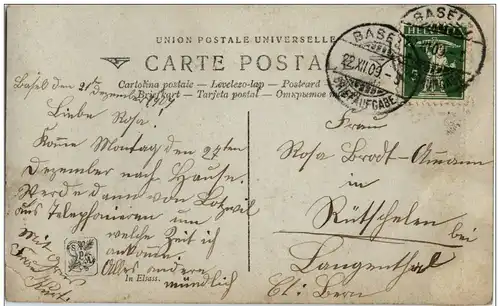 UNION POSTALE UNIVERSELLE
CARTE POSTALE
Cartolina postale — Levelezo-lap — Postcard
Briefkart — Tarjeta postal — Открытое
BASEL
22.XII.09
BRIEFAUFGABE
BASEL
HELVETIA
5
Basel den 21t
Dezember 1909
Liebe Rosa!
Komme Montag den 27ten
Dezember nach Hause.
Werde dann von Lotzwil
aus Telephonieren um
welche Zeit ich
ankomme
Alles andere
mündlich
Mit Gruss
In Elsass.
Frau
Rosa Brodt-Ammann
in
Rütschelen
bei
Langenthal
Ct: Bern